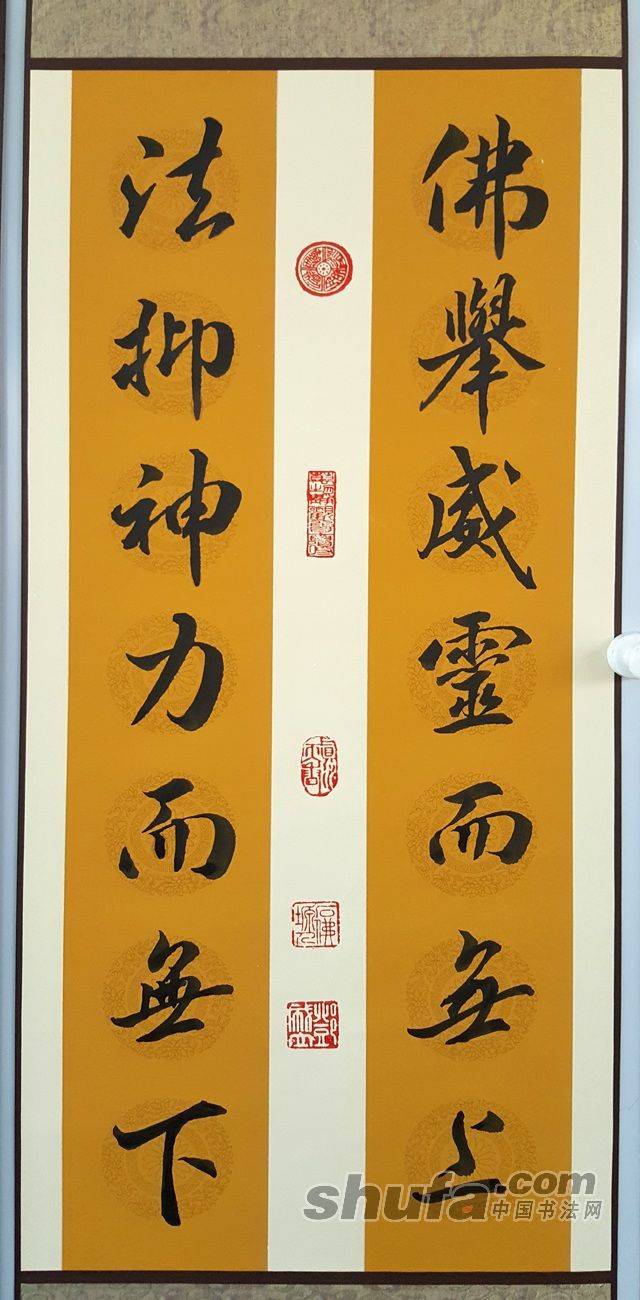 佛舉威靈而無上
法抑神力而無下
shufa.com
中国书法网